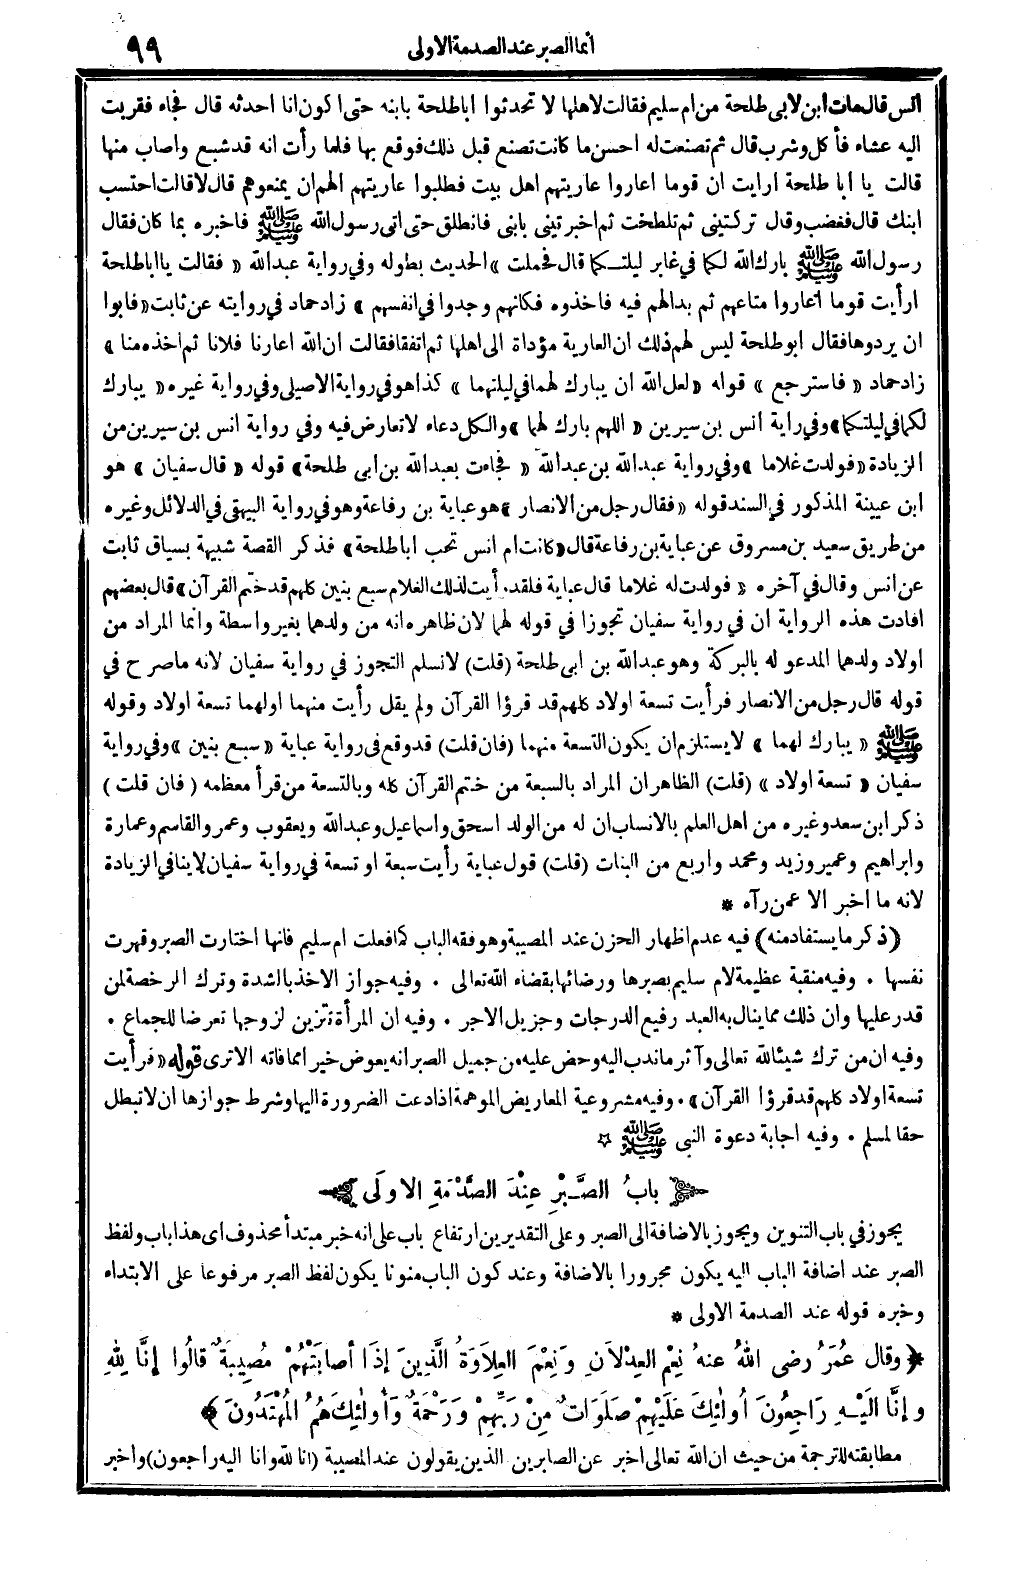 أنما الصبر عند الصدمة الاولى
٩٩
انس قال مات ابن لابى طلحة من ام سليم فقالت لاهلها لا تحدثوا اباطلحة بابنه حتى اكون انا احدثه قال فجاء فقربت
اليه عشاء فأكل وشرب قال ثم تصنعت له احسن ما كانت تصنع قبل ذلك فوقع بها فلما رأت انه قد شبع واصاب منها
قالت يا ابا طلحة ارايت ان قوما اعاروا عاريتهم اهل بيت فطلبوا عاريتهم الهم ان يمنعوهم قال لا قالت احتسب
ابنك قال فغضب وقال تركتينى ثم تلطخت ثم اخبرتينى بابنى فانطلق حتى اتى رسول الله ﷺ فاخبره بما كان فقال
رسول الله ﷺ بارك الله لكما فى غابر ليلتـكما قال فحملت » الحديث بطوله وفى رواية عبدالله « فقالت يااباطلحة
ارأيت قوما اعاروا متاعهم ثم بدالهم فيه فاخذوه فكانهم وجدوا فى انفسهم » زاد حماد فى روايته عن ثابت « فابوا
ان يردوها فقال ابو طلحة ليس لهم ذلك ان العارية مؤداة الى اهلها ثم اتفقا فقالت ان الله اعارنا فلانا ثم اخذه منا »
زاد حماد « فاسترجع » قوله « لعل الله ان يبارك لهما فى ليلتهما » كذا هو فى رواية الاصيلى وفى رواية غيره « يبارك
لكما فى ليلتكما » وفى راية انس بن سيرين « اللهم بارك لهما » والكل دعاء لا تعارض فيه وفى رواية انس بن سيرين من
الزيادة « فولدت غلاما » وفى رواية عبدالله بن عبدالله « فجاءت بعبدالله بن ابى طلحة » قوله « قال سفيان » هو
ابن عيينة المذكور فى السند قوله « فقال رجل من الانصار » هو عباية بن رفاعة وهو فى رواية البيهقى فى الدلائل وغيره
من طريق سعيد بن مسروق عن عباية بن رفاعة قال « كانت ام انس تحب اباطلحة » فذكر القصة شبيهة بسياق ثابت
عن انس وقال فى آخره « فولدت له غلاما قال عباية فلقد رأيت لذلك الغلام سبع بنين كلهم قد ختم القرآن » قال بعضهم
افادت هذه الرواية ان فى رواية سفيان تجوزا فى قوله لهما لان ظاهره انه من ولدهما بغير واسطة وانما المراد من
اولاد ولدهما المدعو له بالبركة وهو عبدالله بن ابى طلحة (قلت) لانسلم التجوز فى رواية سفيان لانه ماصرح فى
قوله قال رجل من الانصار فرأيت تسعة اولاد كلهم قد قرؤا القرآن ولم يقل رأيت منهما اولهما تسعة اولاد وقوله
ﷺ « يبارك لهما » لايستلزم ان يكون التسعة منهما (فان قلت) قد وقع فى رواية عباية « سبع بنين » وفى رواية
سفيان « تسعة اولاد » (قلت) الظاهر ان المراد بالسبعة من ختم القرآن كله وبالتسعة من قرأ معظمه ( فان قلت )
ذكر ابن سعد وغيره من اهل العلم بالانساب ان له من الولد اسحق واسماعيل وعبدالله ويعقوب وعمر والقاسم وعمارة
وابراهيم وعمير وزيد ومحمد واربع من البنات (قلت) قول عباية رأيت سبعة او تسعة فى رواية سفيان لاينافى الزيادة
لانه ما اخبر الا عمن رآه *
(ذكر ما يستفاد منه) فيه عدم اظهار الحزن عند المصيبة وهو فقه الباب كما فعلت ام سليم فانها اختارت الصبر وقهرت
نفسها ٠ وفيه منقبة عظيمة لام سليم بصبرها ورضائها بقضاء الله تعالى ٠ وفيه جواز الاخذ بالشدة وترك الرخصة لمن
قدر عليها وان ذلك مما ينال به العبد رفيع الدرجات وجزيل الاجر ٠ وفيه ان المرأة تتزين لزوجها تعرضا للجماع ٠
وفيه ان من ترك شيئا لله تعالى وآثر ماندب اليه وحض عليه من جميل الصبر انه يعوض خيرا مما فاته الا ترى قوله « فرأيت
تسعة اولاد كلهم قد قرؤا القرآن » ٠ وفيه مشروعية المعاريض الموهمة اذا دعت الضرورة اليها وشرط جوازها ان لا تبطل
حقا لمسلم ٠ وفيه اجابة دعوة النبى ﷺ ☆
بابُ الصَّـبْرِ عِنْدَ الصَّدْمَةِ الاولَى
يجوز فى باب التنوين ويجوز بالاضافة الى الصبر وعلى التقديرين ارتفاع باب على انه خبر مبتدأ محذوف اى هذا باب ولفظ
الصبر عند اضافة الباب اليه يكون مجرورا بالاضافة وعند كون الباب منونا يكون لفظ الصبر مرفوعا على الابتداء
وخبره قوله عند الصدمة الاولى *
﴿ وقال عُمَرُ رضى اللهُ عنهُ نِعْمَ العِدْلانِ وَنِعْمَ العِلَاوَةُ الَّذِينَ إذَا أصابَتْهُمْ مُصِيبَةٌ قالُوا إنَّا لِلهِ
وإنَّا الَيْـهِ رَاجِعُونَ أولٰئِكَ عَلَيْهِمْ صَلَوَاتٌ مِنْ رَبِّهِمْ وَرَحْمَةٌ وَأولٰئِكَ هُمُ المُهْتَدُونَ ﴾
مطابقته للترجمة من حيث ان الله تعالى اخبر عن الصابرين الذين يقولون عند المصيبة (انا لله وانا اليه راجعون) واخبر